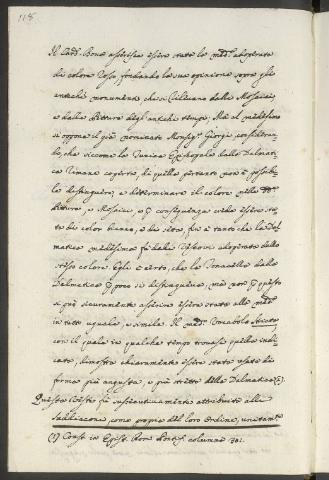 118
Il Card. Bona asserisce essere stata la med.a adoperata
di colore rosso, fondando la sua opinione sopra gli
antichi monumenti, che si rilevano dalli Mosaici,
e dalle Pitture degl'antichi tempi; Ma al medesimo
si oppone il già nominato Monsig.r Giorgi considerando,
che siccome la Tunica Episcopale dalla Dalmatica
rimane coperta, di quella pertanto non è possibile
distinguere, e determinare il colore nelle
Pitture, e Mosaici, e p conseguenza
di color bianco, e la
Dalmatica medesima fu dalli Vescovi adoperata dello
stesso colore. Egli è certo, che la Tonacella dalla
Dalmatica p poco si distingueva, mà non p questo
si può sicuramente asserire essere stata alla med.a
in tutto uguale, e simile. Il med.o vocabolo stricta,
con il quale in qualche tempo trovasi quella indicata,
dimostra chiaramente essere stata usata di
forma più angusta, e più stretta della Dalmatica (1)
Questa veste fu susseguentemente attribuita alli
Suddiaconi, come propria del loro Ordine, unitam.te
(1) Const. in Epist. Rom. Pontif. columna 701.